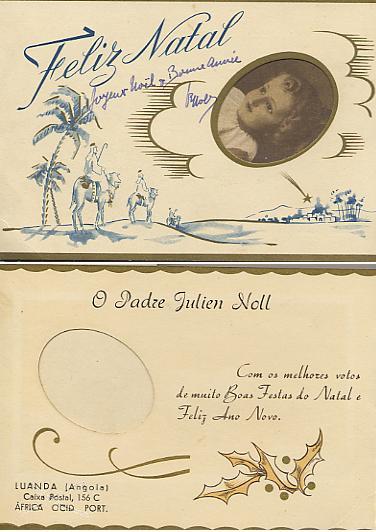 Feliz Natal
Joyeux Noël & Bonne Année
PNoll
O Padre Julien Noll
Com os melhores votos
de muito Boas Festas do Natal e
Feliz Ano Novo.
LUANDA (Angola)
Caixa Postal, 156 C
ÁFRICA OCID. PORT.